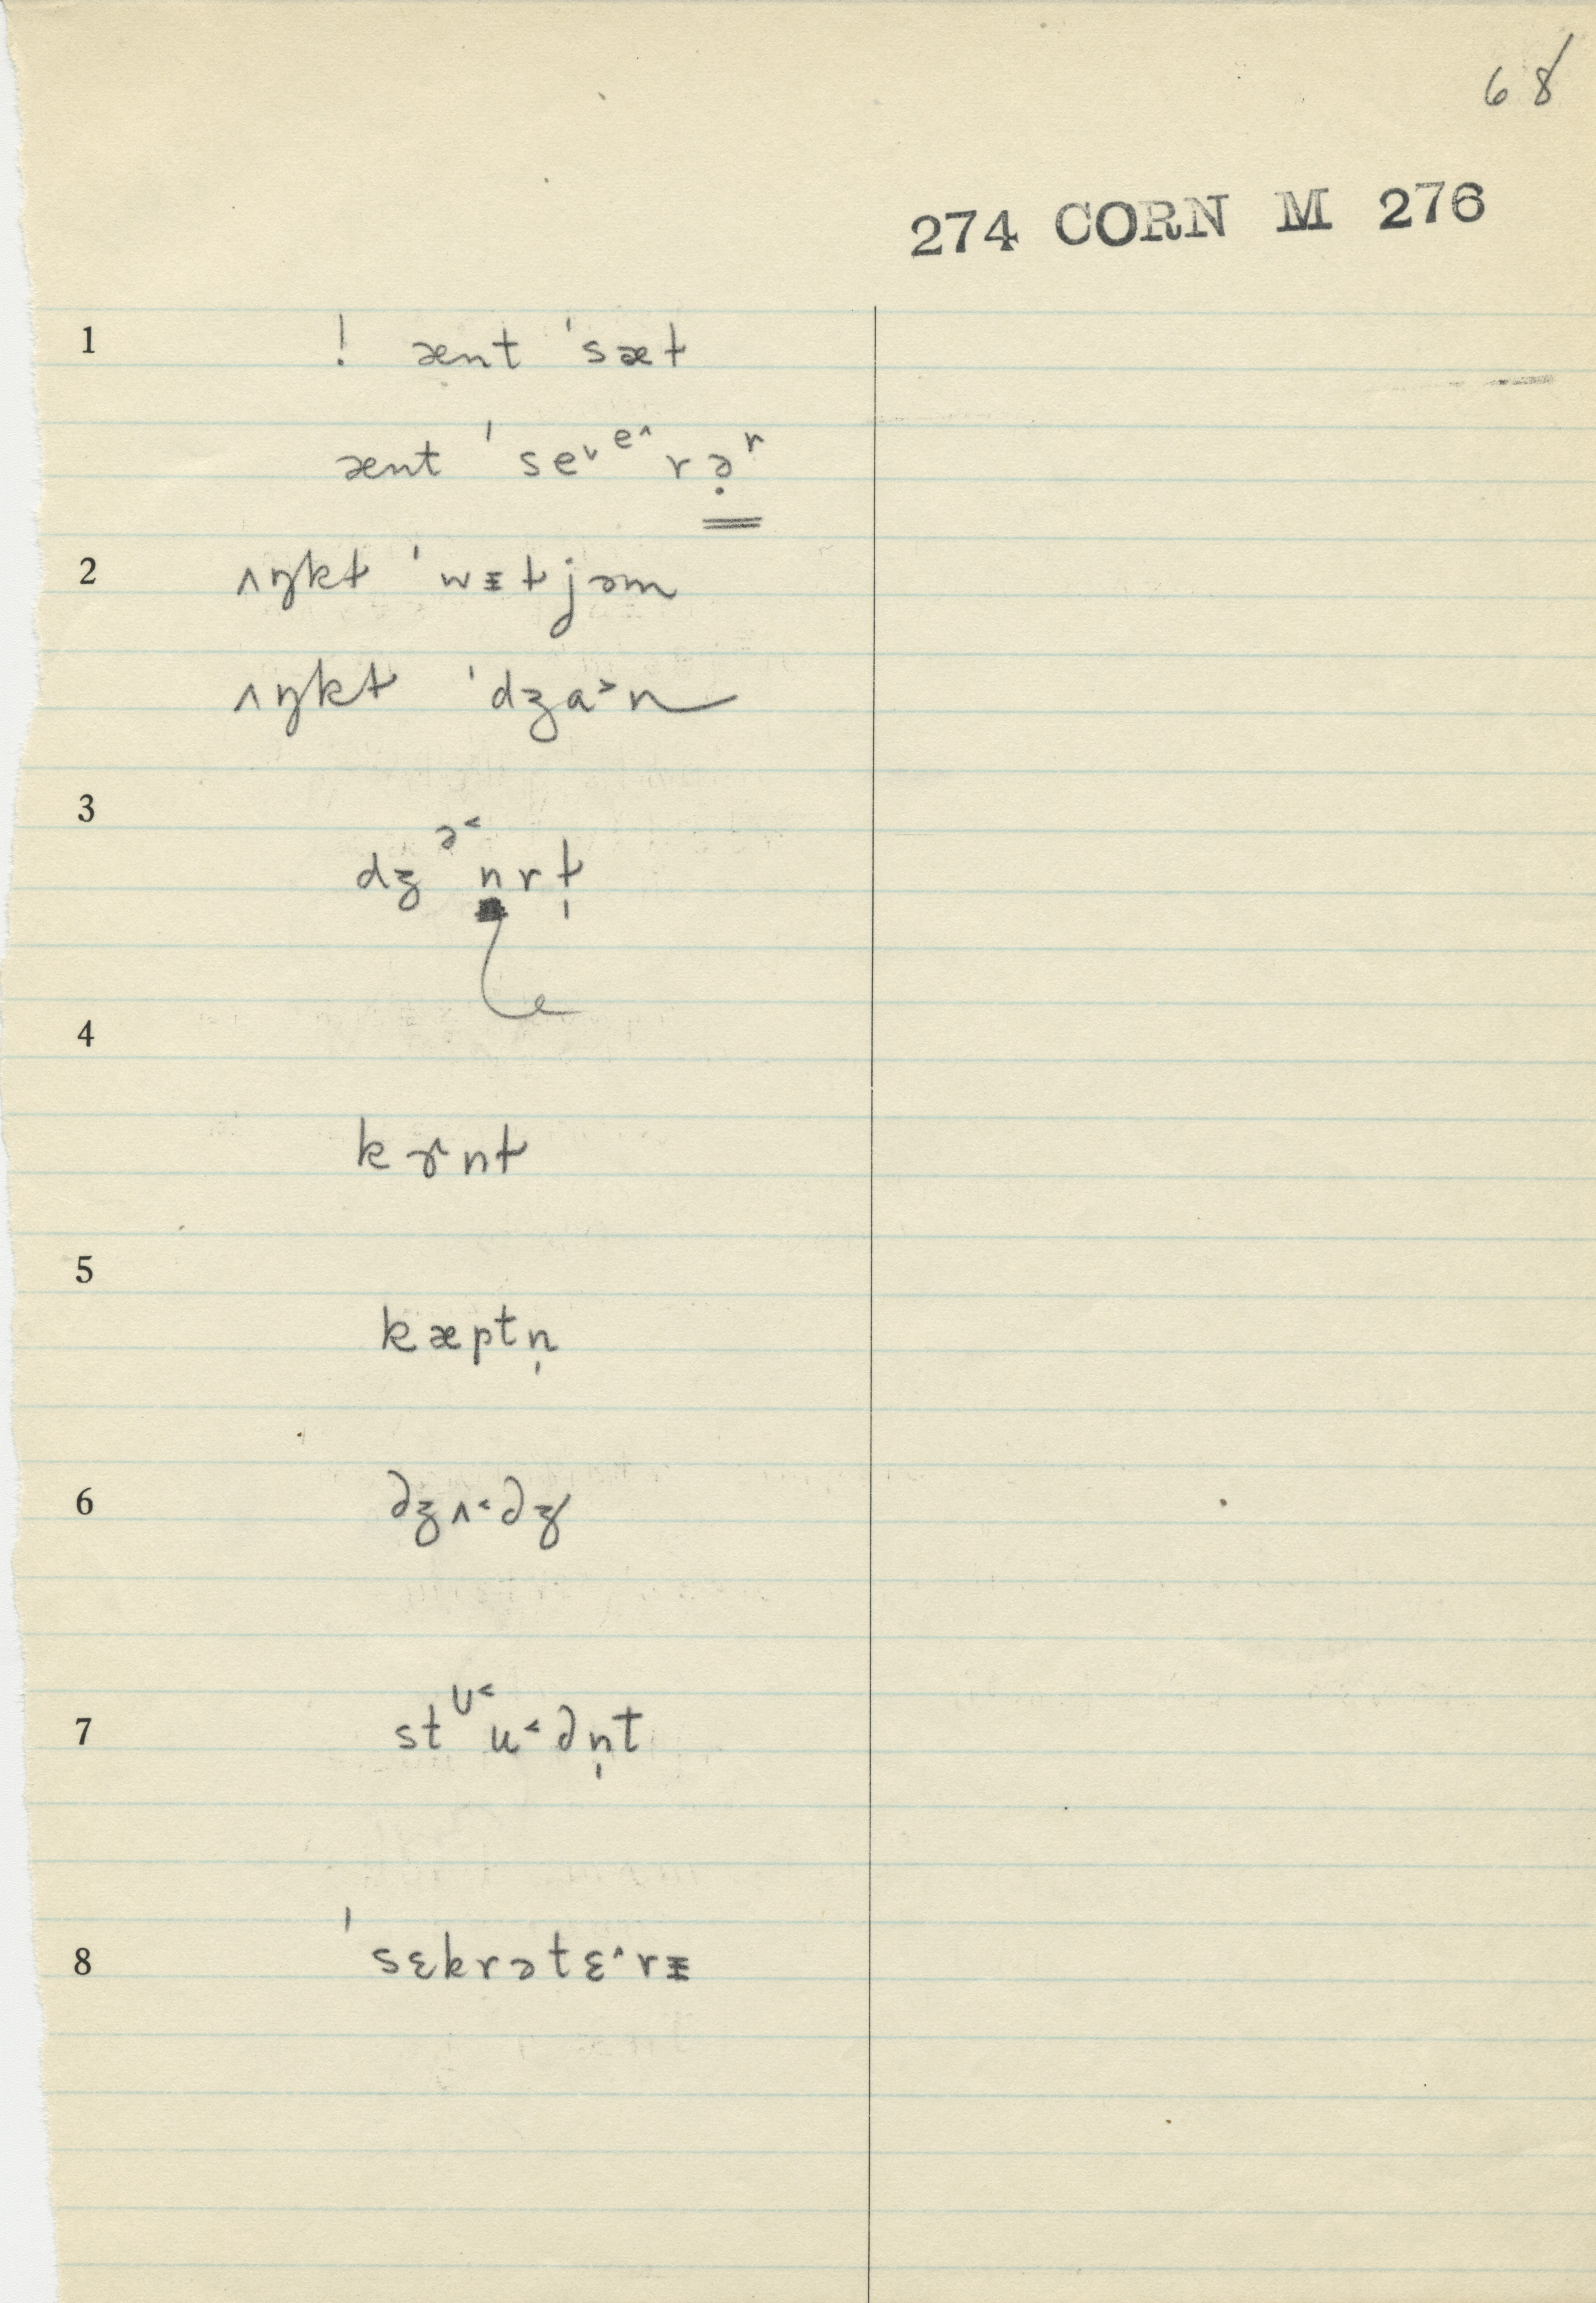 68
274 CORN M 276
1 ! ænt ˈsæɫ
ænt ˈse˅ᵉ^rə̣ʳ
2 ʌŋkɫ ˈwᵻɫjəm
ʌŋkɫ ˈdʒa˃n
3 dʒᵊ˂nrɫ̩
4 kɝnɫ
5 kæptn̩
6 dʒʌ˂dʒ
7 stᶸ˂u˂dn̩t
8 ˈsɛkrətɛ^rᵻ